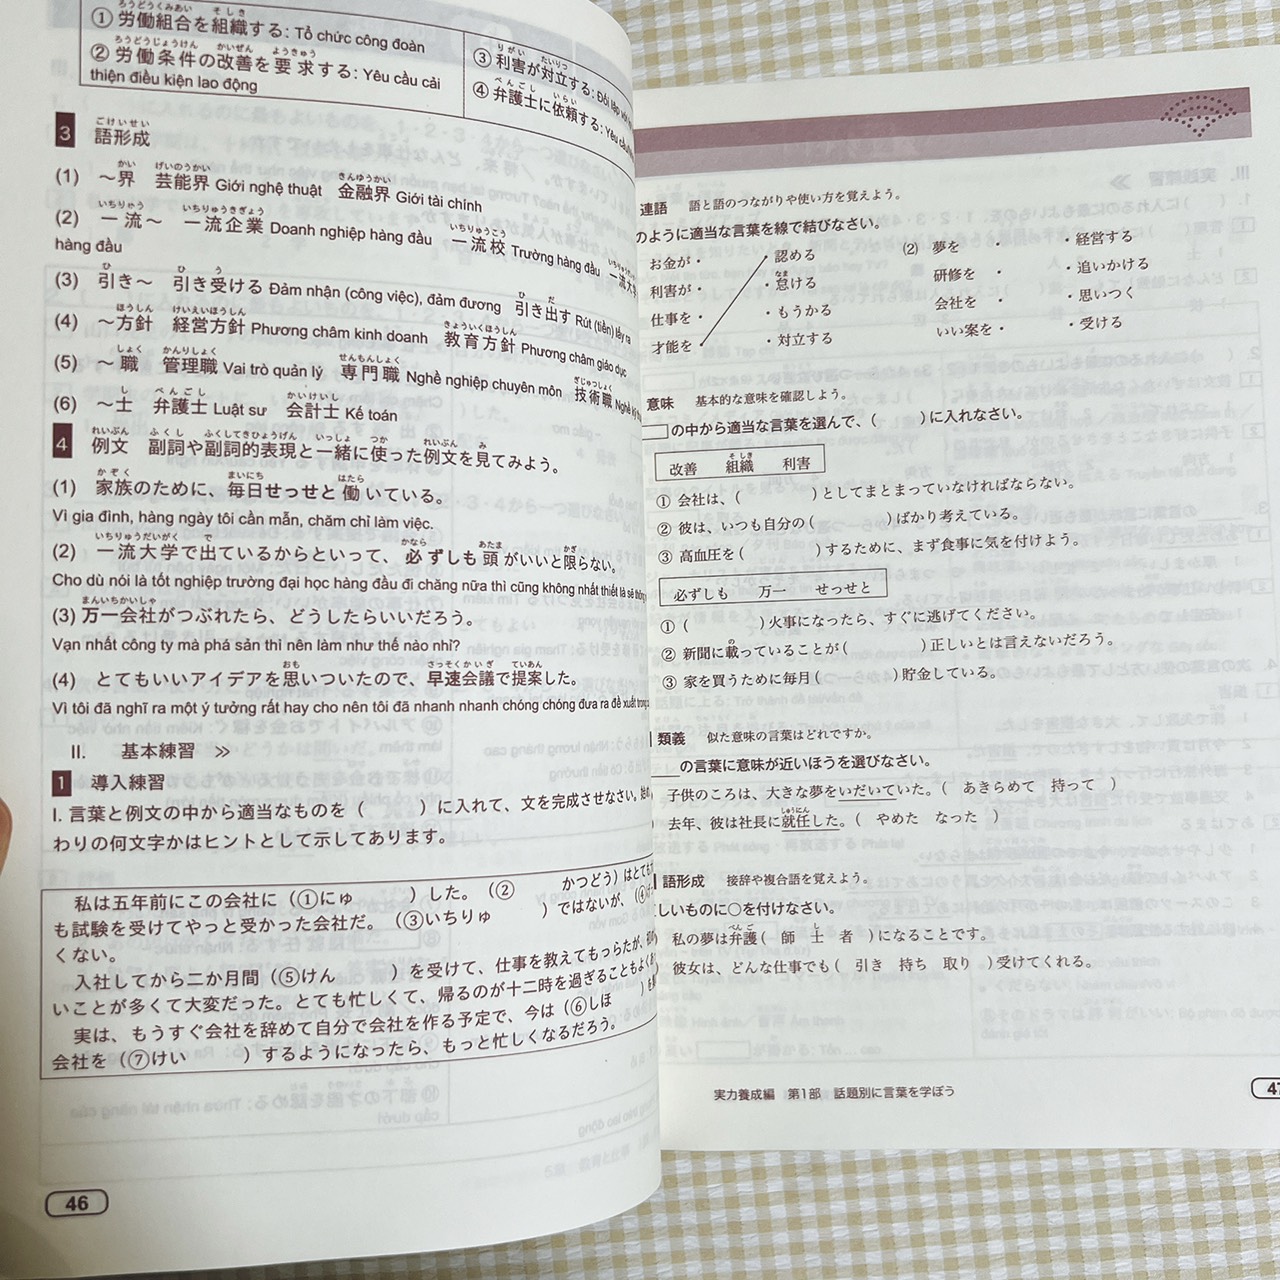 ① 労働組合を組織する: Tổ chức công đoàn
② 労働条件の改善を要求する: Yêu cầu cải
thiện điều kiện lao động
③ 利害が対立する: Đối lập
④ 弁護士に依頼する: Yêu
3 語形成
(1) ～界 芸能界 Giới nghệ thuật 金融界 Giới tài chính
(2) 一流～ 一流企業 Doanh nghiệp hàng đầu 一流校 Trường hàng đầu 一流大学
hàng đầu
(3) 引き～ 引き受ける Đảm nhận (công việc), đảm đương 引き出す Rút (tiền) lấy ra
(4) ～方針 経営方針 Phương châm kinh doanh 教育方針 Phương châm giáo dục
(5) ～職 管理職 Vai trò quản lý 専門職 Nghề nghiệp chuyên môn 技術職 Nghề
(6) ～士 弁護士 Luật sư 会計士 Kế toán
4 例文 副詞や副詞的表現と一緒に使った例文を見てみよう。
(1) 家族のために、毎日せっせと働いている。
Vì gia đình, hàng ngày tôi cần mẫn, chăm chỉ làm việc.
(2) 一流大学で出ているからといって、必ずしも頭がいいと限らない。
Cho dù nói là tốt nghiệp trường đại học hàng đầu đi chăng nữa thì cũng không nhất thiết là sẽ
(3) 万一会社がつぶれたら、どうしたらいいだろう。
Vạn nhất công ty mà phá sản thì nên làm như thế nào nhỉ?
(4) とてもいいアイデアを思いついたので、早速会議で提案した。
Vì tôi đã nghĩ ra một ý tưởng rất hay cho nên tôi đã nhanh nhanh chóng chóng đưa ra đề xuất trong
II. 基本練習 ≫
1 導入練習
I. 言葉と例文の中から適当なものを ( ) に入れて、文を完成させなさい。
わりの何文字かはヒントとして示してあります。
私は五年前にこの会社に (①にゅ ) した。(② かつどう) はとて
も試験を受けてやっと受かった会社だ。(③いちりゅ ) ではないが、(④
くない。
入社してから二か月間 (⑤けん ) を受けて、仕事を教えてもらったが、
いことが多くて大変だった。とても忙しくて、帰るのが十二時を過ぎることもよく
実は、もうすぐ会社を辞めて自分で会社を作る予定で、今は (⑥しほ )
会社を (⑦けい ) するようになったら、もっと忙しくなるだろう。
46
連語 語と語のつながりや使い方を覚えよう。
のように適当な言葉を線で結びなさい。
お金が・ ・認める
利害が・ ・怠ける
仕事を・ ・もうかる
才能を・ ・対立する
(2) 夢を ・ ・経営する
研修を ・ ・追いかける
会社を ・ ・思いつく
いい案を・ ・受ける
意味 基本的な意味を確認しよう。
の中から適当な言葉を選んで、( )に入れなさい。
改善 組織 利害
① 会社は、( )としてまとまっていなければならない。
② 彼は、いつも自分の( )ばかり考えている。
③ 高血圧を( )するために、まず食事に気を付けよう。
必ずしも 万一 せっせと
① ( )火事になったら、すぐに逃げてください。
② 新聞に載っていることが( )正しいとは言えないだろう。
③ 家を買うために毎月( )貯金している。
類義 似た意味の言葉はどれですか。
の言葉に意味が近いほうを選びなさい。
子供のころは、大きな夢をいだいていた。( あきらめて 持って )
去年、彼は社長に就任した。( やめた なった )
語形成 接辞や複合語を覚えよう。
しいものに○を付けなさい。
私の夢は弁護( 師 士 者 )になることです。
彼女は、どんな仕事でも( 引き 持ち 取り )受けてくれる。
実力養成編 第1部 話題別に言葉を学ぼう
47